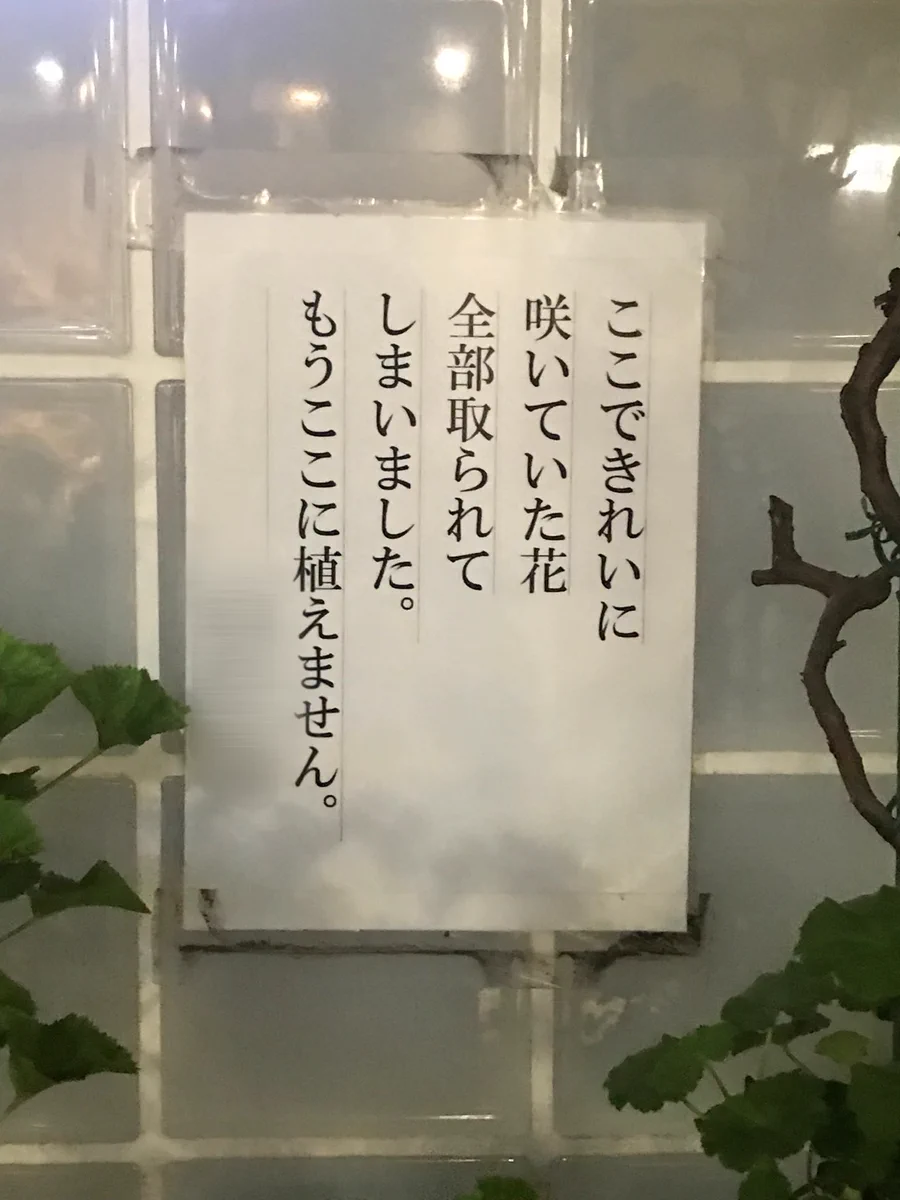 ここできれいに
咲いていた花
全部取られて
しまいました。
もうここに植えません。